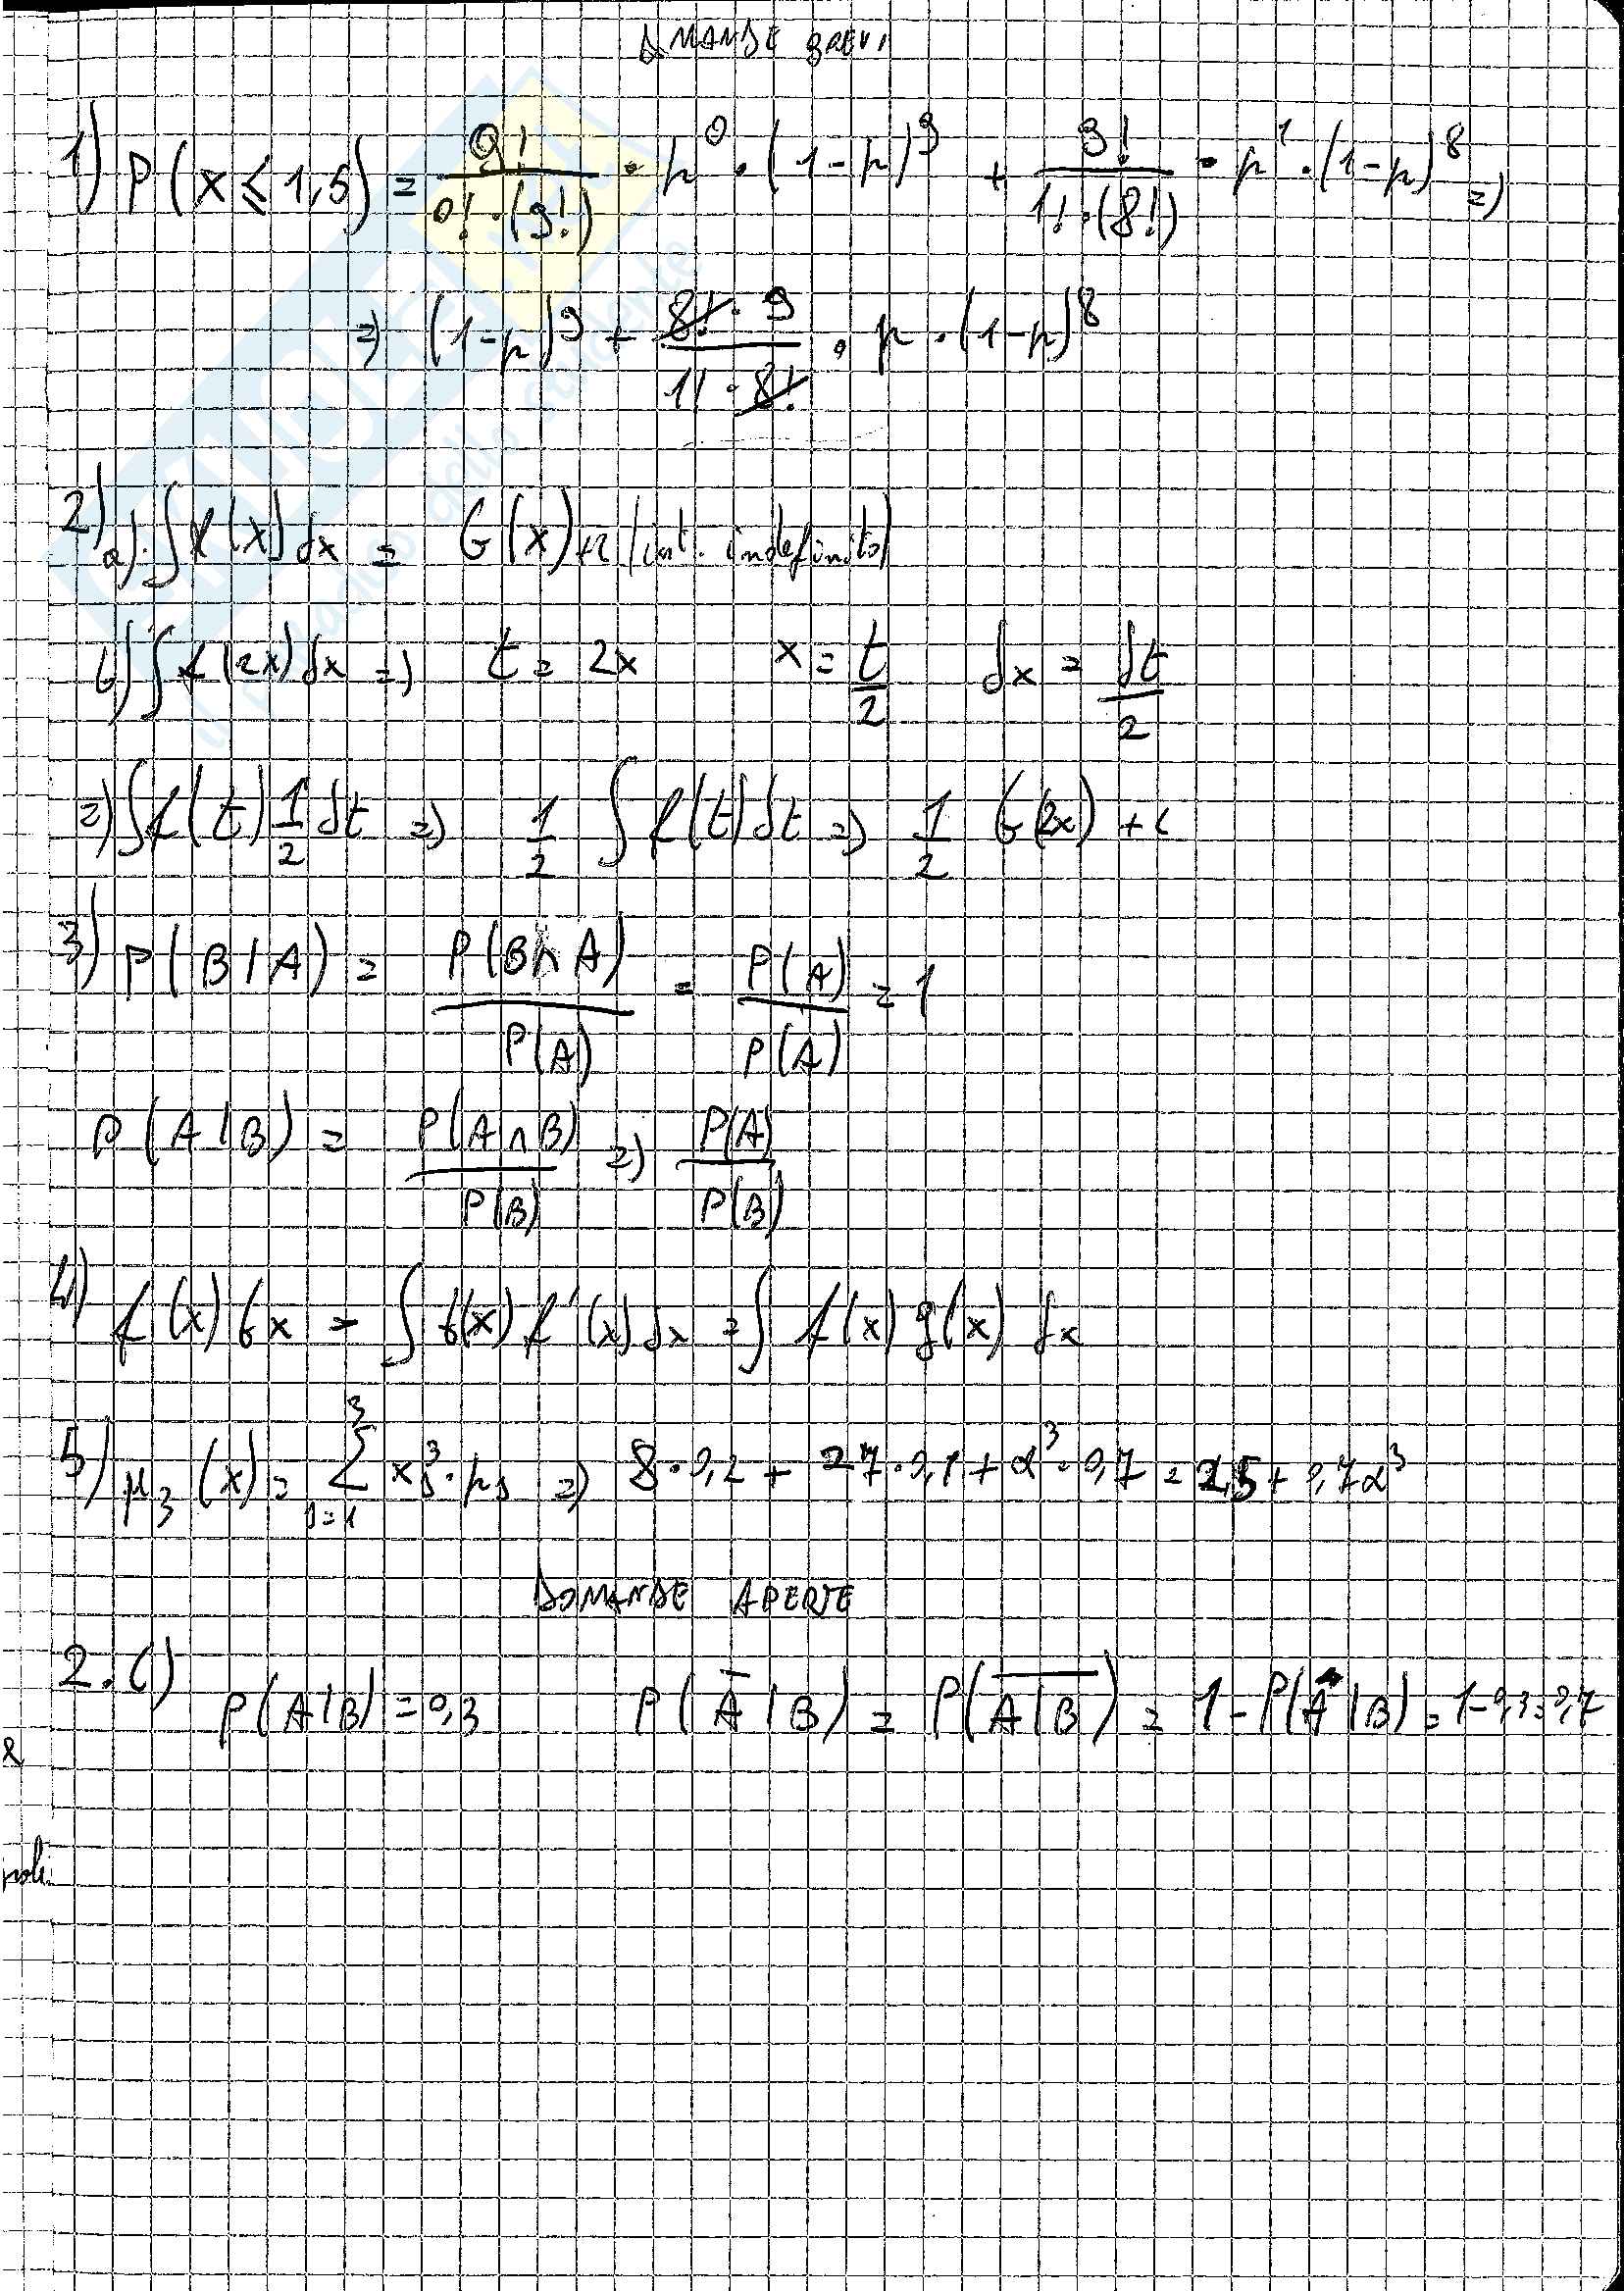 DOMANDE BREVI
1) P(x ≤ 1,5) = 9!/(0!·(9!)) · p^0 · (1-p)^9 + 9!/(1!·(8!)) · p^1 · (1-p)^8 =)
=) (1-p)^9 + (8!·9)/(1!·8!) · p · (1-p)^8
2) a) ∫f(x)dx = G(x)+c (int. indefinito)
b) ∫f(2x)dx =) t = 2x x = t/2 dx = dt/2
=) ∫f(t) 1/2 dt =) 1/2 ∫f(t)dt =) 1/2 G(2x) + c
3) P(B|A) = P(B∩A)/P(A) = P(A)/P(A) = 1
P(A|B) = P(A∩B)/P(B) =) P(A)/P(B)
4) f(x)Gx = ∫G(x)f'(x)dx = ∫f(x)g(x)dx
5) μ3(x) = Σ_{s=1}^{3} xs^3·ps =) 8·0,2 + 27·0,1 + α^3·0,7 = + 0,7α^3
DOMANDE APERTE
2.C) P(A|B) = 0,3 P(Ā|B) = P(A̅|̅B̅) = 1-P(A|B) = 1-0,3=0,7